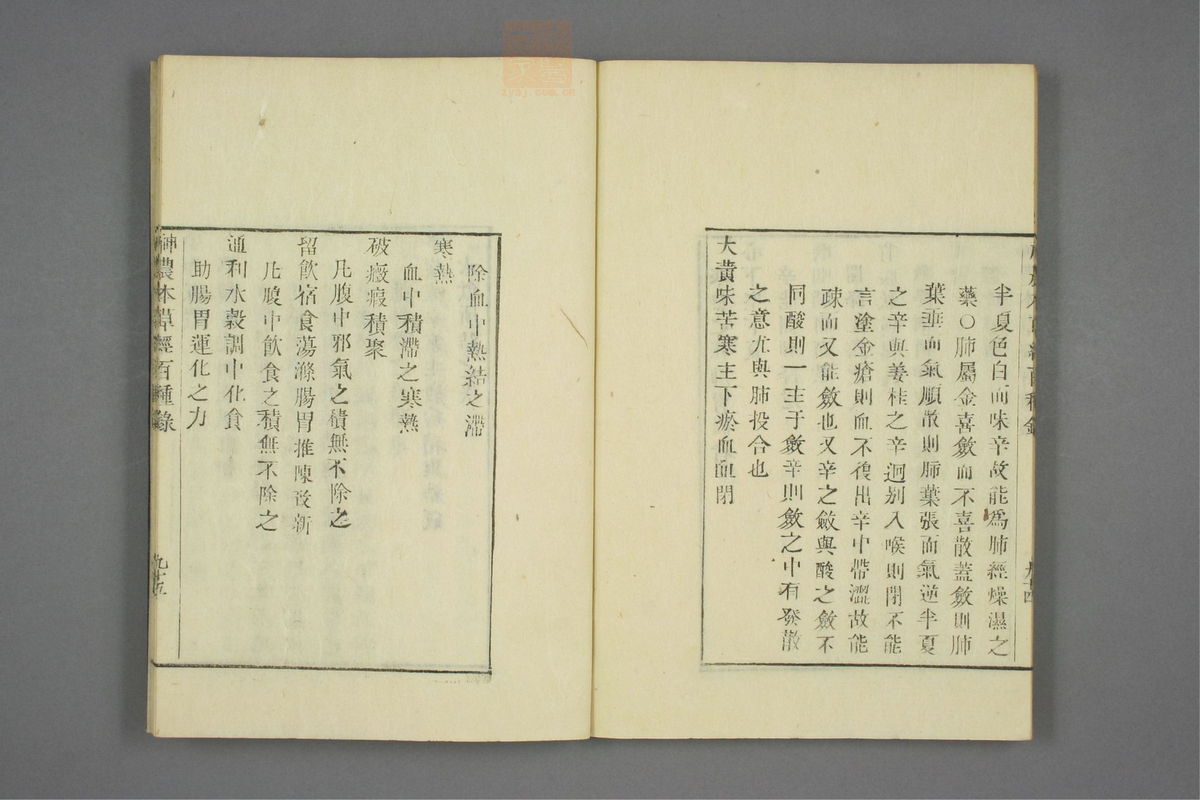 半夏色白而味辛故能爲肺經燥濕之
藥○肺屬金喜斂而不喜散蓋斂則肺
葉垂而氣順散則肺葉張而氣逆半夏
之辛與姜桂之辛迥别入喉則閉不能
言塗金瘡則血不復出辛中帶澀故能
疎而又能斂也又辛之斂與酸之斂不
同酸則一主于斂辛則斂之中有發散
之意尤與肺投合也
大黄味苦寒主下瘀血血閉
除血中熱結之滯
寒熱
血中積滯之寒熱
破癥瘕積聚
凡腹中邪氣之積無不除之
留飲宿食蕩滌腸胃推陳致新
凡腹中飲食之積無不除之
通利水穀調中化食
助腸胃運化之力
神農本草經百種錄
九十五
zysj.com.cn